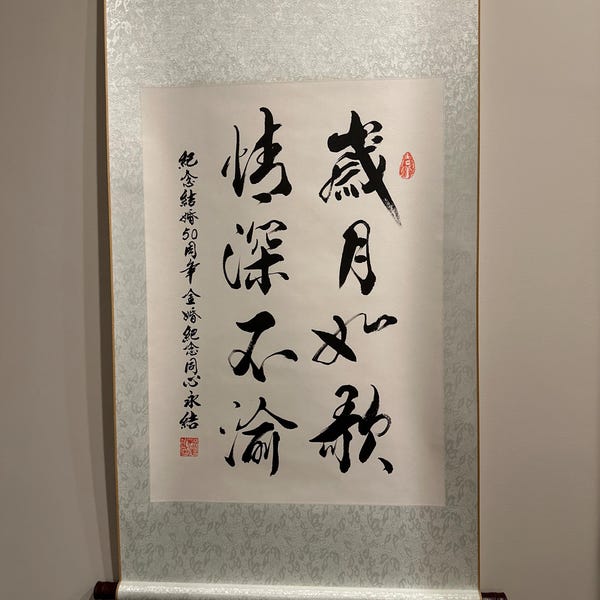 歲月如歌
情深不渝
紀念結婚50周年 金婚紀念同心永結